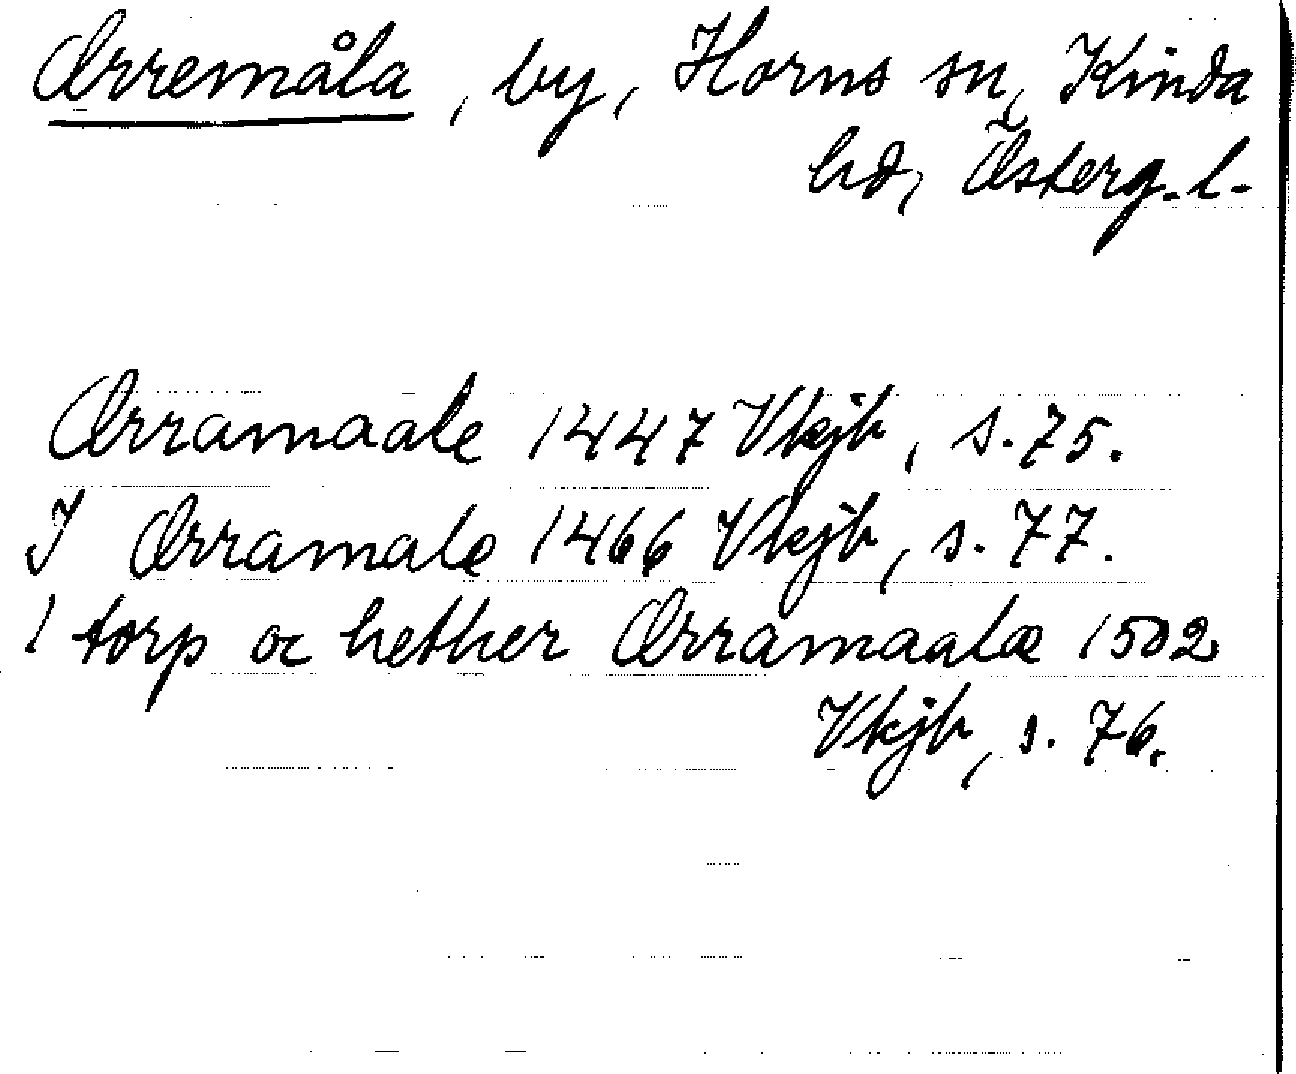 Orremåla, by, Horns sn, Kinda
hd, Österg. l.
Orramaale 1447 Vkjb, s. 75.
J Orramale 1466 Vkjb, s. 77.
1 torp oc hether Orramaalæ 1502
Vkjb, s. 76.